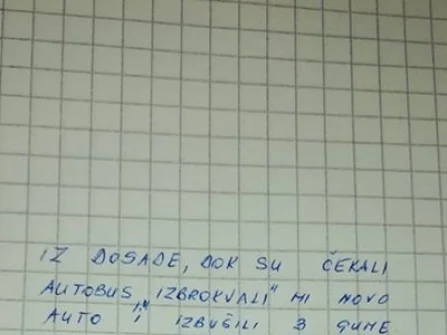 IZ DOSADE, DOK SU ČEKALI
AUTOBUS „IZBROKVALI" MI NOVO
AUTO I IZBUŠILI 3 GUME